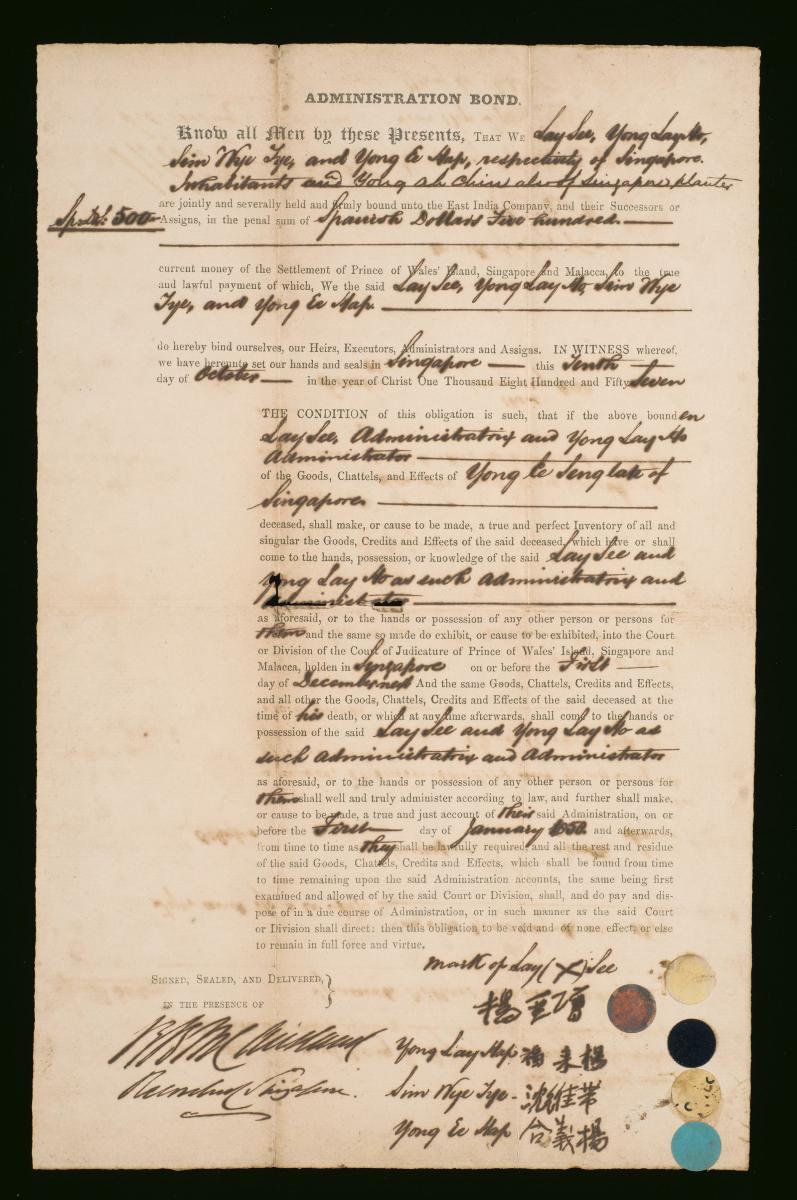 ADMINISTRATION BOND.
Know all Men by these Presents, THAT WE Lay See, Yong Lay Ho,
Sim Wye Tye, and Yong Ee Hap, respectively of Singapore.
Inhabitants and Yong Ah Chin also of Singapore planter
are jointly and severally held and firmly bound unto the East India Company, and their Successors or
Sp. Drs. 500 Assigns, in the penal sum of Spanish Dollars Five hundred.
current money of the Settlement of Prince of Wales' Island, Singapore and Malacca, to the true
and lawful payment of which, We the said Lay See, Yong Lay Ho, Sim Wye
Tye, and Yong Ee Hap.
do hereby bind ourselves, our Heirs, Executors, Administrators and Assigns. IN WITNESS whereof,
we have hereunto set our hands and seals in Singapore this Tenth
day of October in the year of Christ One Thousand Eight Hundred and Fifty Seven
THE CONDITION of this obligation is such, that if the above bounden
Lay See, Administratrix and Yong Lay Ho
Administrator
of the Goods, Chattels, and Effects of Yong Ee Seng late of
Singapore
deceased, shall make, or cause to be made, a true and perfect Inventory of all and
singular the Goods, Credits and Effects of the said deceased, which have or shall
come to the hands, possession, or knowledge of the said Lay See and
Yong Lay Ho as such Administratrix and
Administrator
as aforesaid, or to the hands or possession of any other person or persons for
them and the same so made do exhibit, or cause to be exhibited, into the Court
or Division of the Court of Judicature of Prince of Wales' Island, Singapore and
Malacca, holden in Singapore on or before the First
day of December next And the same Goods, Chattels, Credits and Effects,
and all other the Goods, Chattels, Credits and Effects of the said deceased at the
time of his death, or which at any time afterwards, shall come to the hands or
possession of the said Lay See and Yong Lay Ho as
such Administratrix and Administrator
as aforesaid, or to the hands or possession of any other person or persons for
them shall well and truly administer according to law, and further shall make,
or cause to be made, a true and just account of their said Administration, on or
before the First day of January and afterwards,
from time to time as they shall be lawfully required, and all the rest and residue
of the said Goods, Chattels, Credits and Effects, which shall be found from time
to time remaining upon the said Administration accounts, the same being first
examined and allowed of by the said Court or Division, shall, and do pay and dis-
pose of in a due course of Administration, or in such manner as the said Court
or Division shall direct: then this obligation to be void and of none effect, or else
to remain in full force and virtue.
mark of Lay (X) See
SIGNED, SEALED, AND DELIVERED,
IN THE PRESENCE OF
楊
Yong Lay Hap 來 楊
Sim Wye Tye - 沈
Yong Ee Hap 合 義 楊